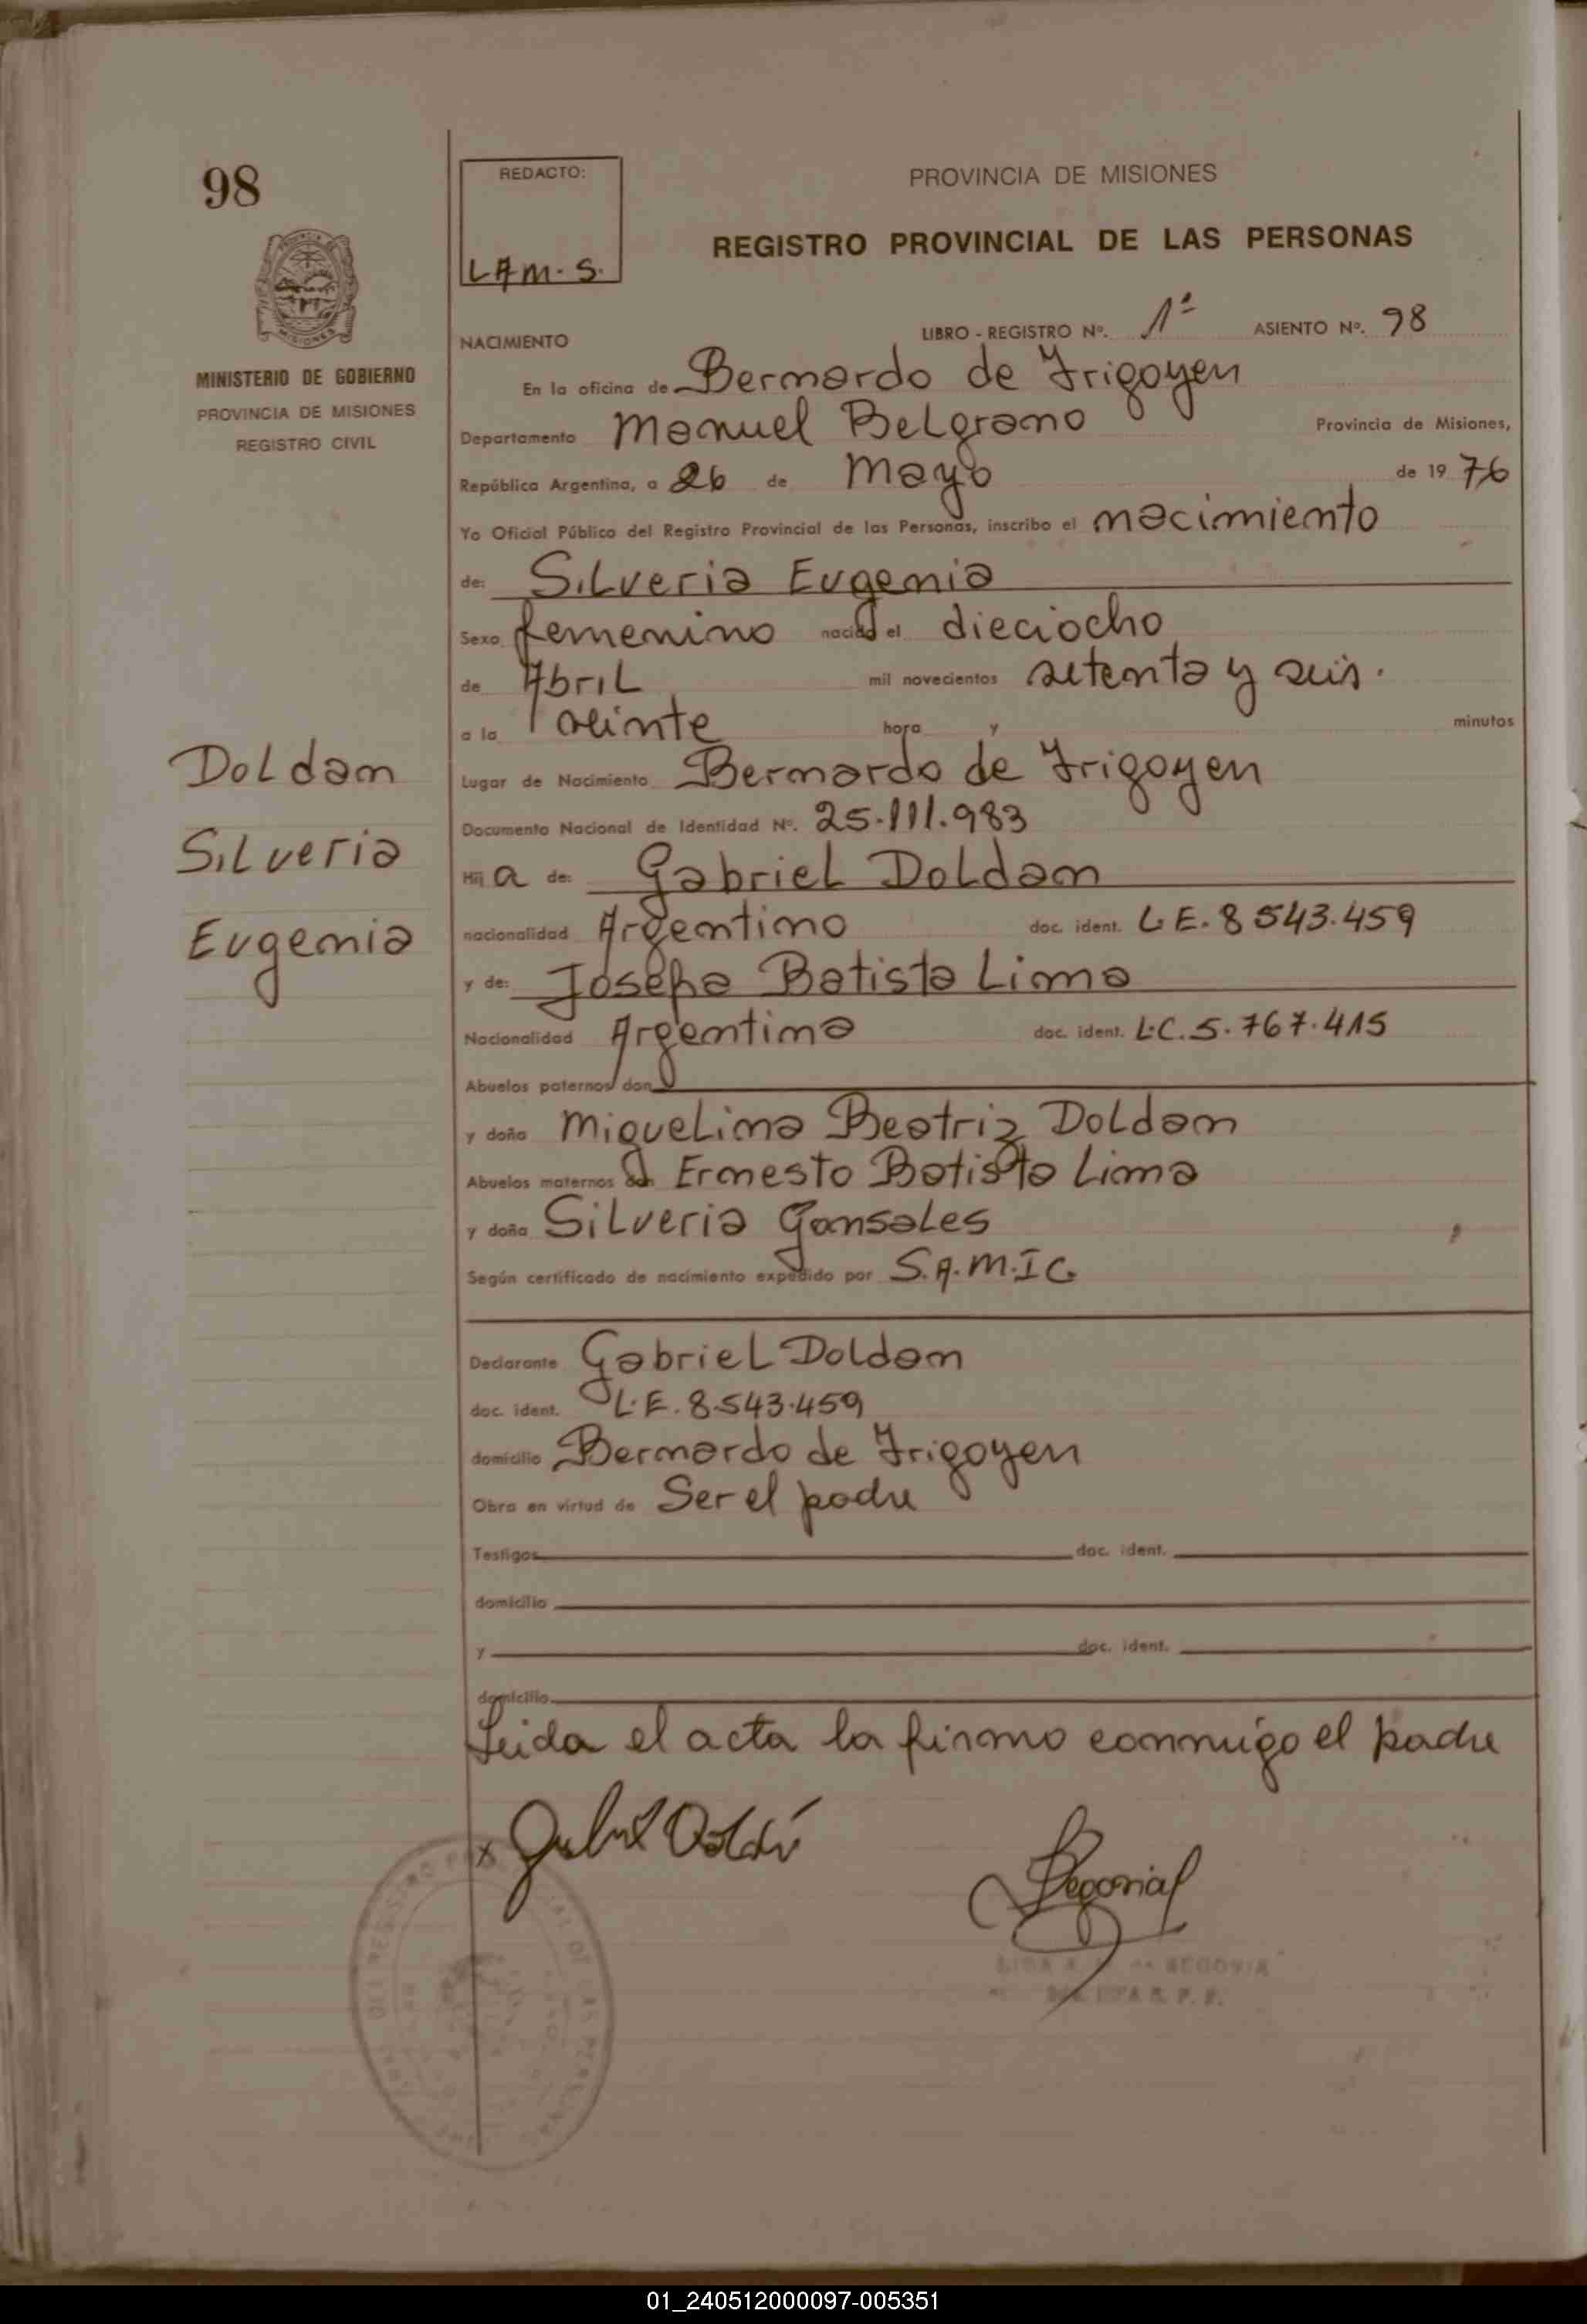 98
MINISTERIO DE GOBIERNO
PROVINCIA DE MISIONES
REGISTRO CIVIL
Doldan
Silveria
Eugenia
REDACTO:
L A M. S.
PROVINCIA DE MISIONES
REGISTRO PROVINCIAL DE LAS PERSONAS
NACIMIENTO LIBRO - REGISTRO Nº. 1º ASIENTO Nº. 98
En la oficina de Bernardo de Irigoyen
Departamento Manuel Belgrano Provincia de Misiones,
República Argentina, a 26 de Mayo de 1976
Yo Oficial Público del Registro Provincial de las Personas, inscribo el nacimiento
de: Silveria Eugenia
Sexo femenino nacida el dieciocho
de Abril mil novecientos setenta y seis.
a la veinte hora y minutos
Lugar de Nacimiento Bernardo de Irigoyen
Documento Nacional de Identidad Nº. 25.111.983
Hija de: Gabriel Doldan
nacionalidad Argentino doc. ident. L.E. 8543.459
y de: Josefa Batista Lima
Nacionalidad Argentina doc. ident. L.C. 5.767.415
Abuelos paternos don
y doña Miguelina Beatriz Doldan
Abuelos maternos don Ernesto Batista Lima
y doña Silveria Gonsales
Según certificado de nacimiento expedido por S.A.M.I.C
Declarante Gabriel Doldan
doc. ident. L.E. 8.543.459
domicilio Bernardo de Irigoyen
Obra en virtud de Ser el padre
Testigos doc. ident.
domicilio
y doc. ident.
domicilio
Leida el acta la firmo conmigo el padre
x
SEGOVIA
01_240512000097-005351